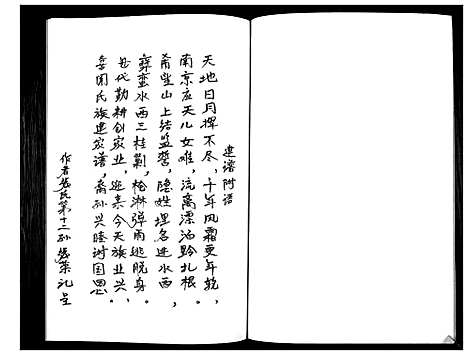 建谱附语
天地日月挥不尽，十年风霜更年乾，
南京应天儿女难，流离漂泊黔扎根。
希望山上结盟誓，隐姓埋名进水西
彝蛮水西三桂剿，枪淋弹雨逃脱身。
世代勤耕创家业，逝来今天族业兴，
委团氏族建家谱，裔孙兴隆谢国恩。
作者 氏第十三孙 荣礼呈